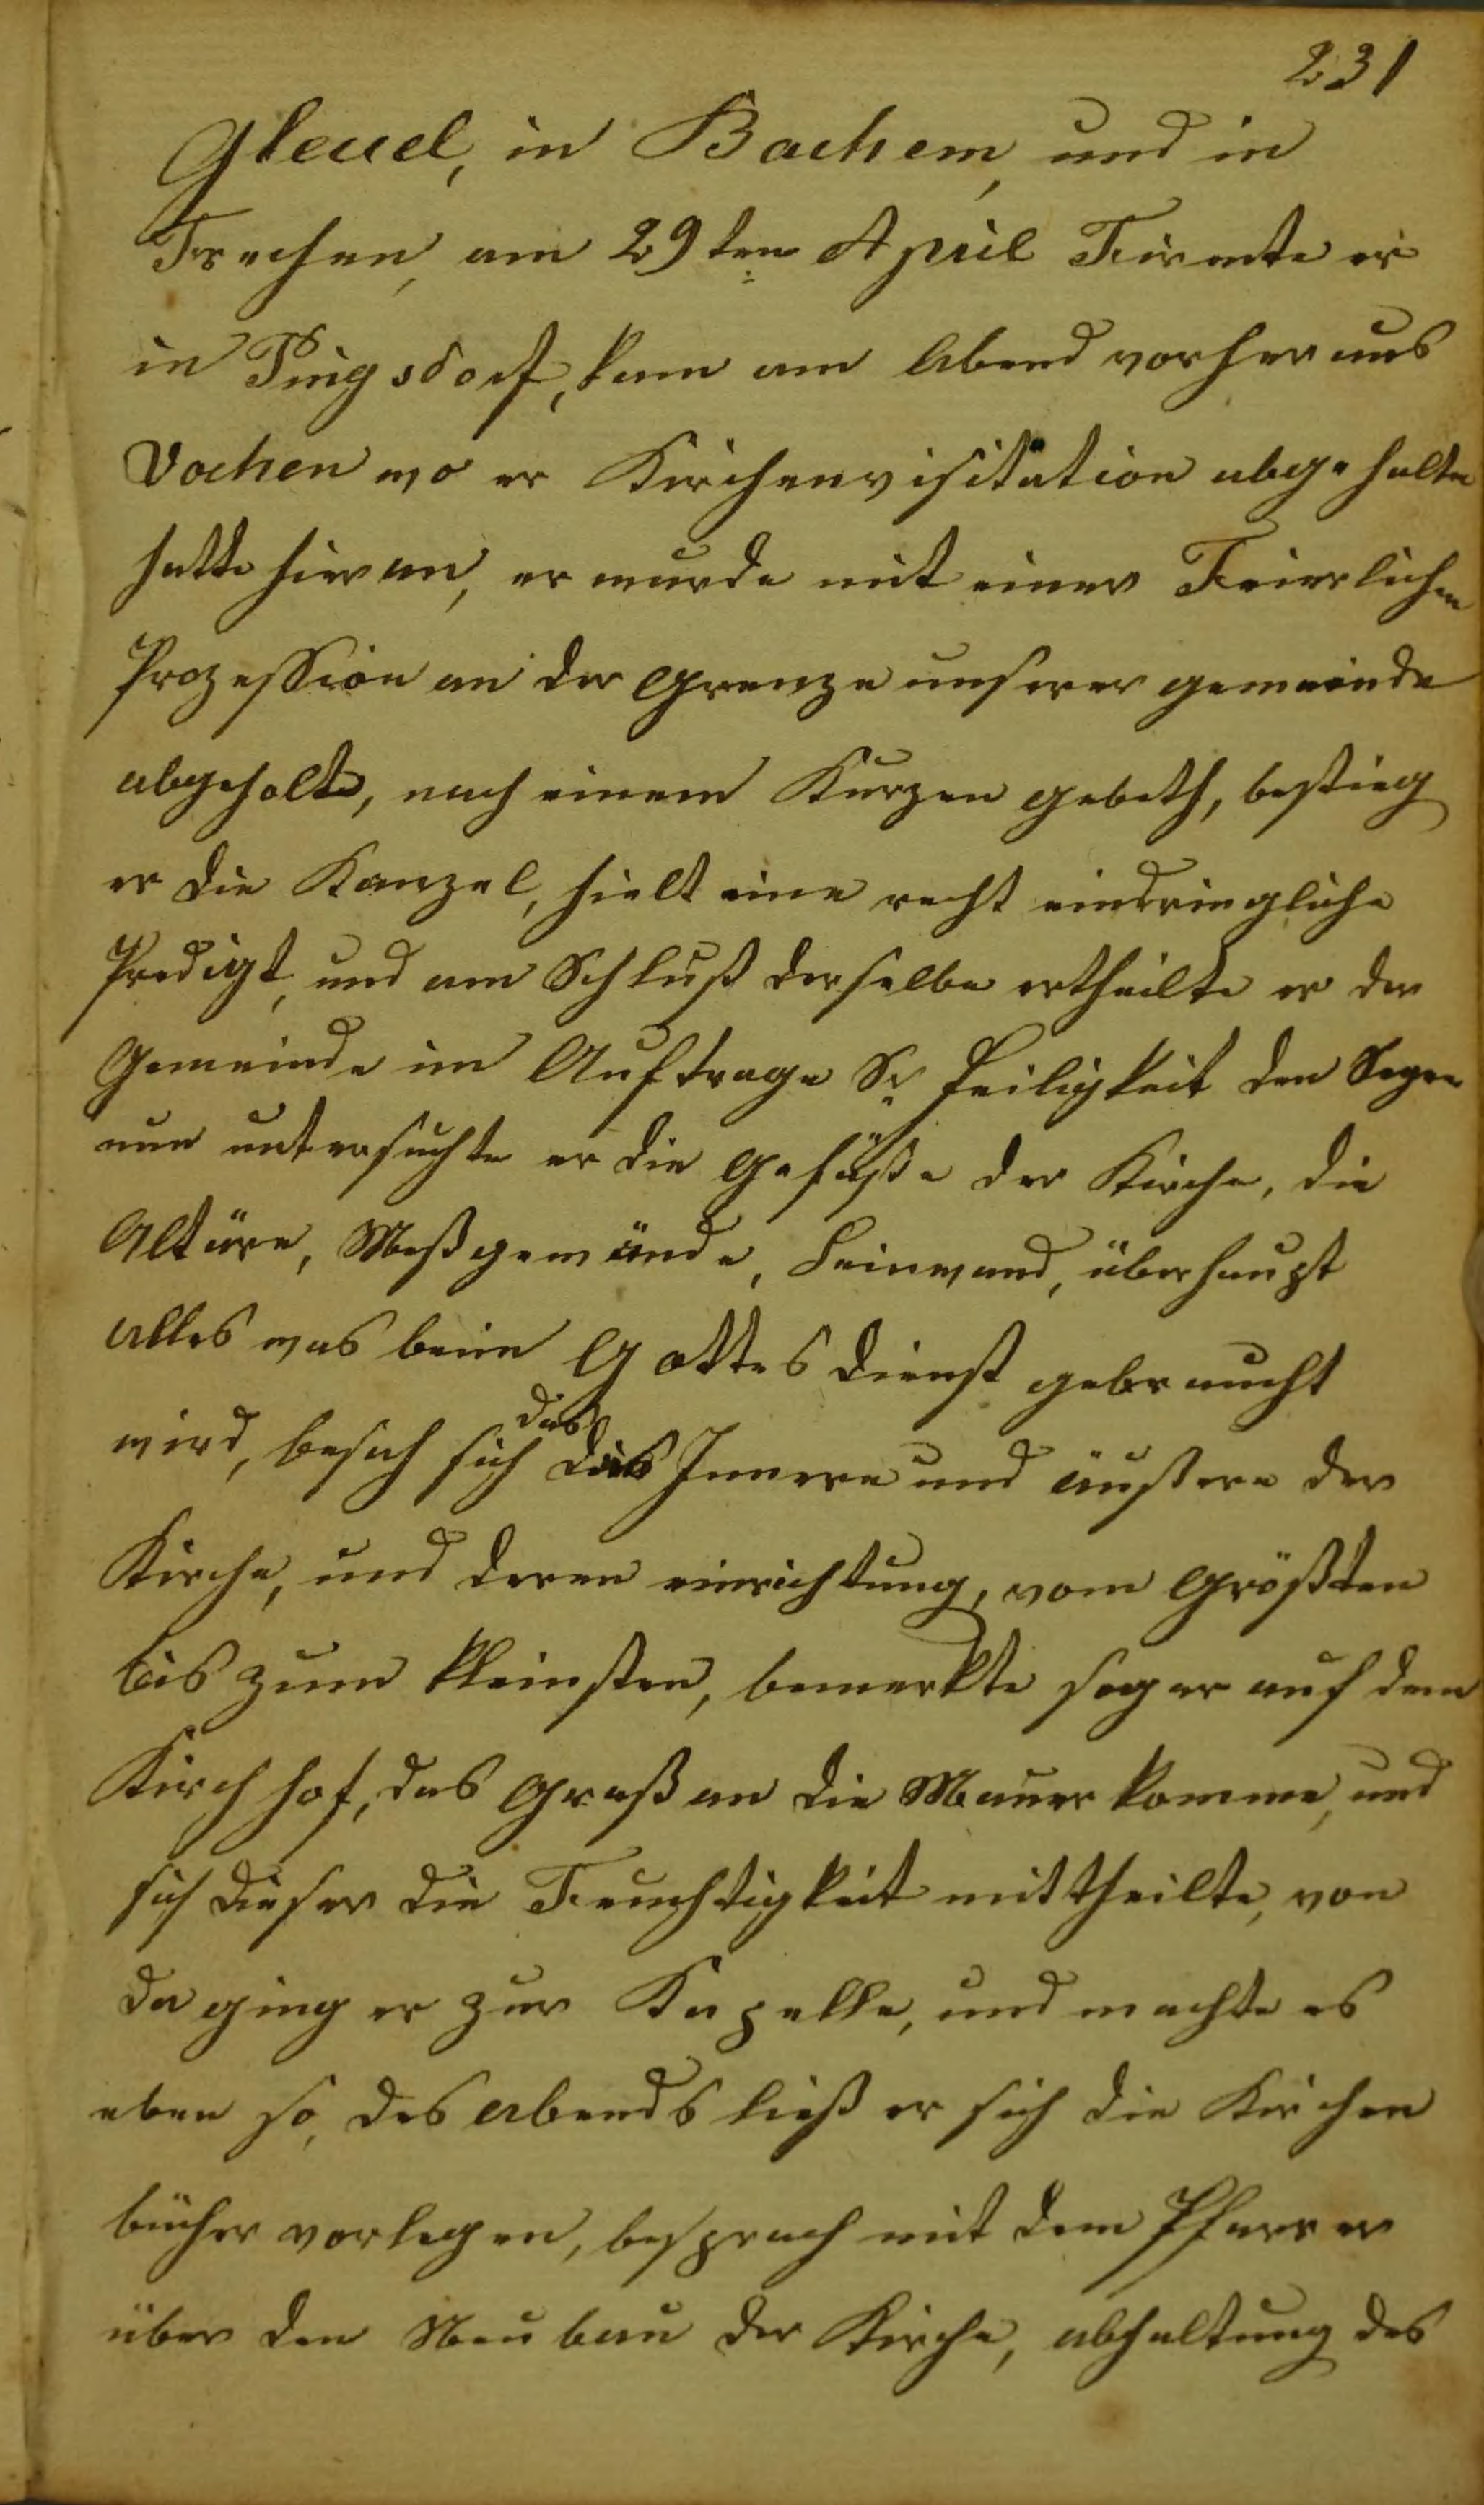 231
Gleuel, in Bachem, und in
Frechen, am 29ten April Firmte er
in Pingsdorf, kam am Abend vorher aus
Vochen wo er Kirchenvisitation abgehalten
hatte hier an, er wurde mit einer Feierlichen
Prozession an der Grenze unserer gemeinde
abgeholt, nach einem Kurzen gebeth, bestieg
er die Kanzel, hielt eine recht eindringliche
Predigt, und am Schluß derselbe ertheilte er der
Gemeinde im Auftrage Sr Heiligkeit den Segen
nun untersuchte er die Gefäße der Kirche, die
Altäre, Meßgewände, Leinwand, überhaupt
alles was beim Gottesdienst gebraucht
wird, besah sich das Innere und äußere der
Kirche, und deren einrichtung, vom Größten
bis zum kleinsten, bemerkte sogar auf dem
Kirchhof, das Graß an die Mauer komme, und
sich dieser die Feuchtigkeit mittheilte, von
da ging er zur Kapelle, und machte es
eben so, des abends ließ er sich die Kirchen
bücher vorlegen, besprach mit dem Pfarrer
über den Neubau der Kirche, abhaltung des